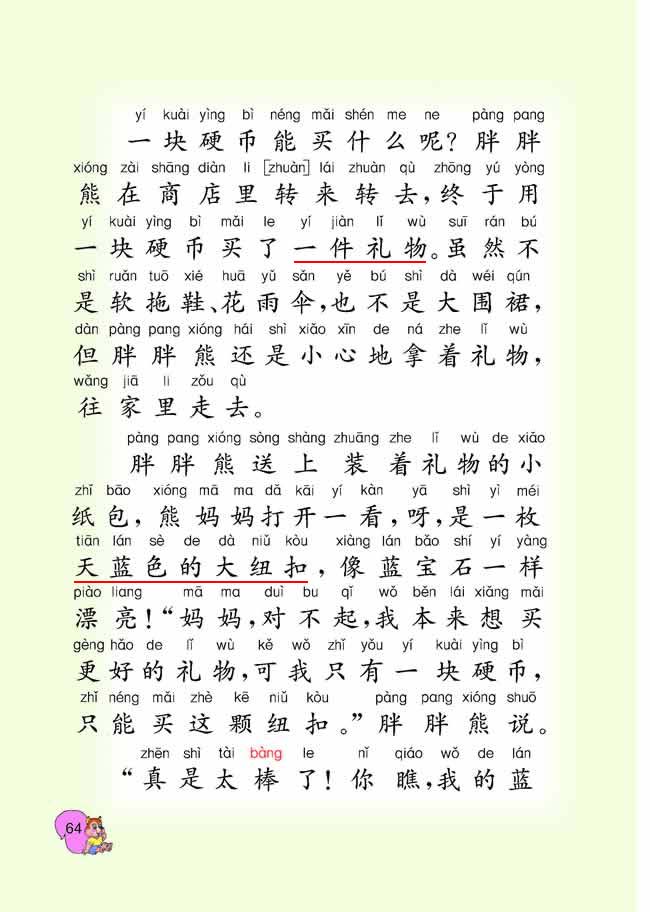 yí kuài yìng bì néng mǎi shén me ne pàng pang
一块硬币能买什么呢？胖胖
xióng zài shāng diàn li [zhuàn] lái zhuàn qù zhōng yú yòng
熊在商店里转来转去，终于用
yí kuài yìng bì mǎi le yí jiàn lǐ wù suī rán bú
一块硬币买了一件礼物。虽然不
shì ruǎn tuō xié huā yǔ sǎn yě bú shì dà wéi qún
是软拖鞋、花雨伞，也不是大围裙，
dàn pàng pang xióng hái shì xiǎo xīn de ná zhe lǐ wù
但胖胖熊还是小心地拿着礼物，
wǎng jiā li zǒu qù
往家里走去。
pàng pang xióng sòng shàng zhuāng zhe lǐ wù de xiǎo
胖胖熊送上装着礼物的小
zhǐ bāo xióng mā ma dǎ kāi yí kàn yā shì yì méi
纸包，熊妈妈打开一看，呀，是一枚
tiān lán sè de dà niǔ kòu xiàng lán bǎo shí yí yàng
天蓝色的大纽扣，像蓝宝石一样
piào liang mā ma duì bu qǐ wǒ běn lái xiǎng mǎi
漂亮！“妈妈，对不起，我本来想买
gèng hǎo de lǐ wù kě wǒ zhǐ yǒu yí kuài yìng bì
更好的礼物，可我只有一块硬币，
zhǐ néng mǎi zhè kē niǔ kòu pàng pang xióng shuō
只能买这颗纽扣。”胖胖熊说。
zhēn shì tài bàng le nǐ qiáo wǒ de lán
“真是太棒了！你瞧，我的蓝
64